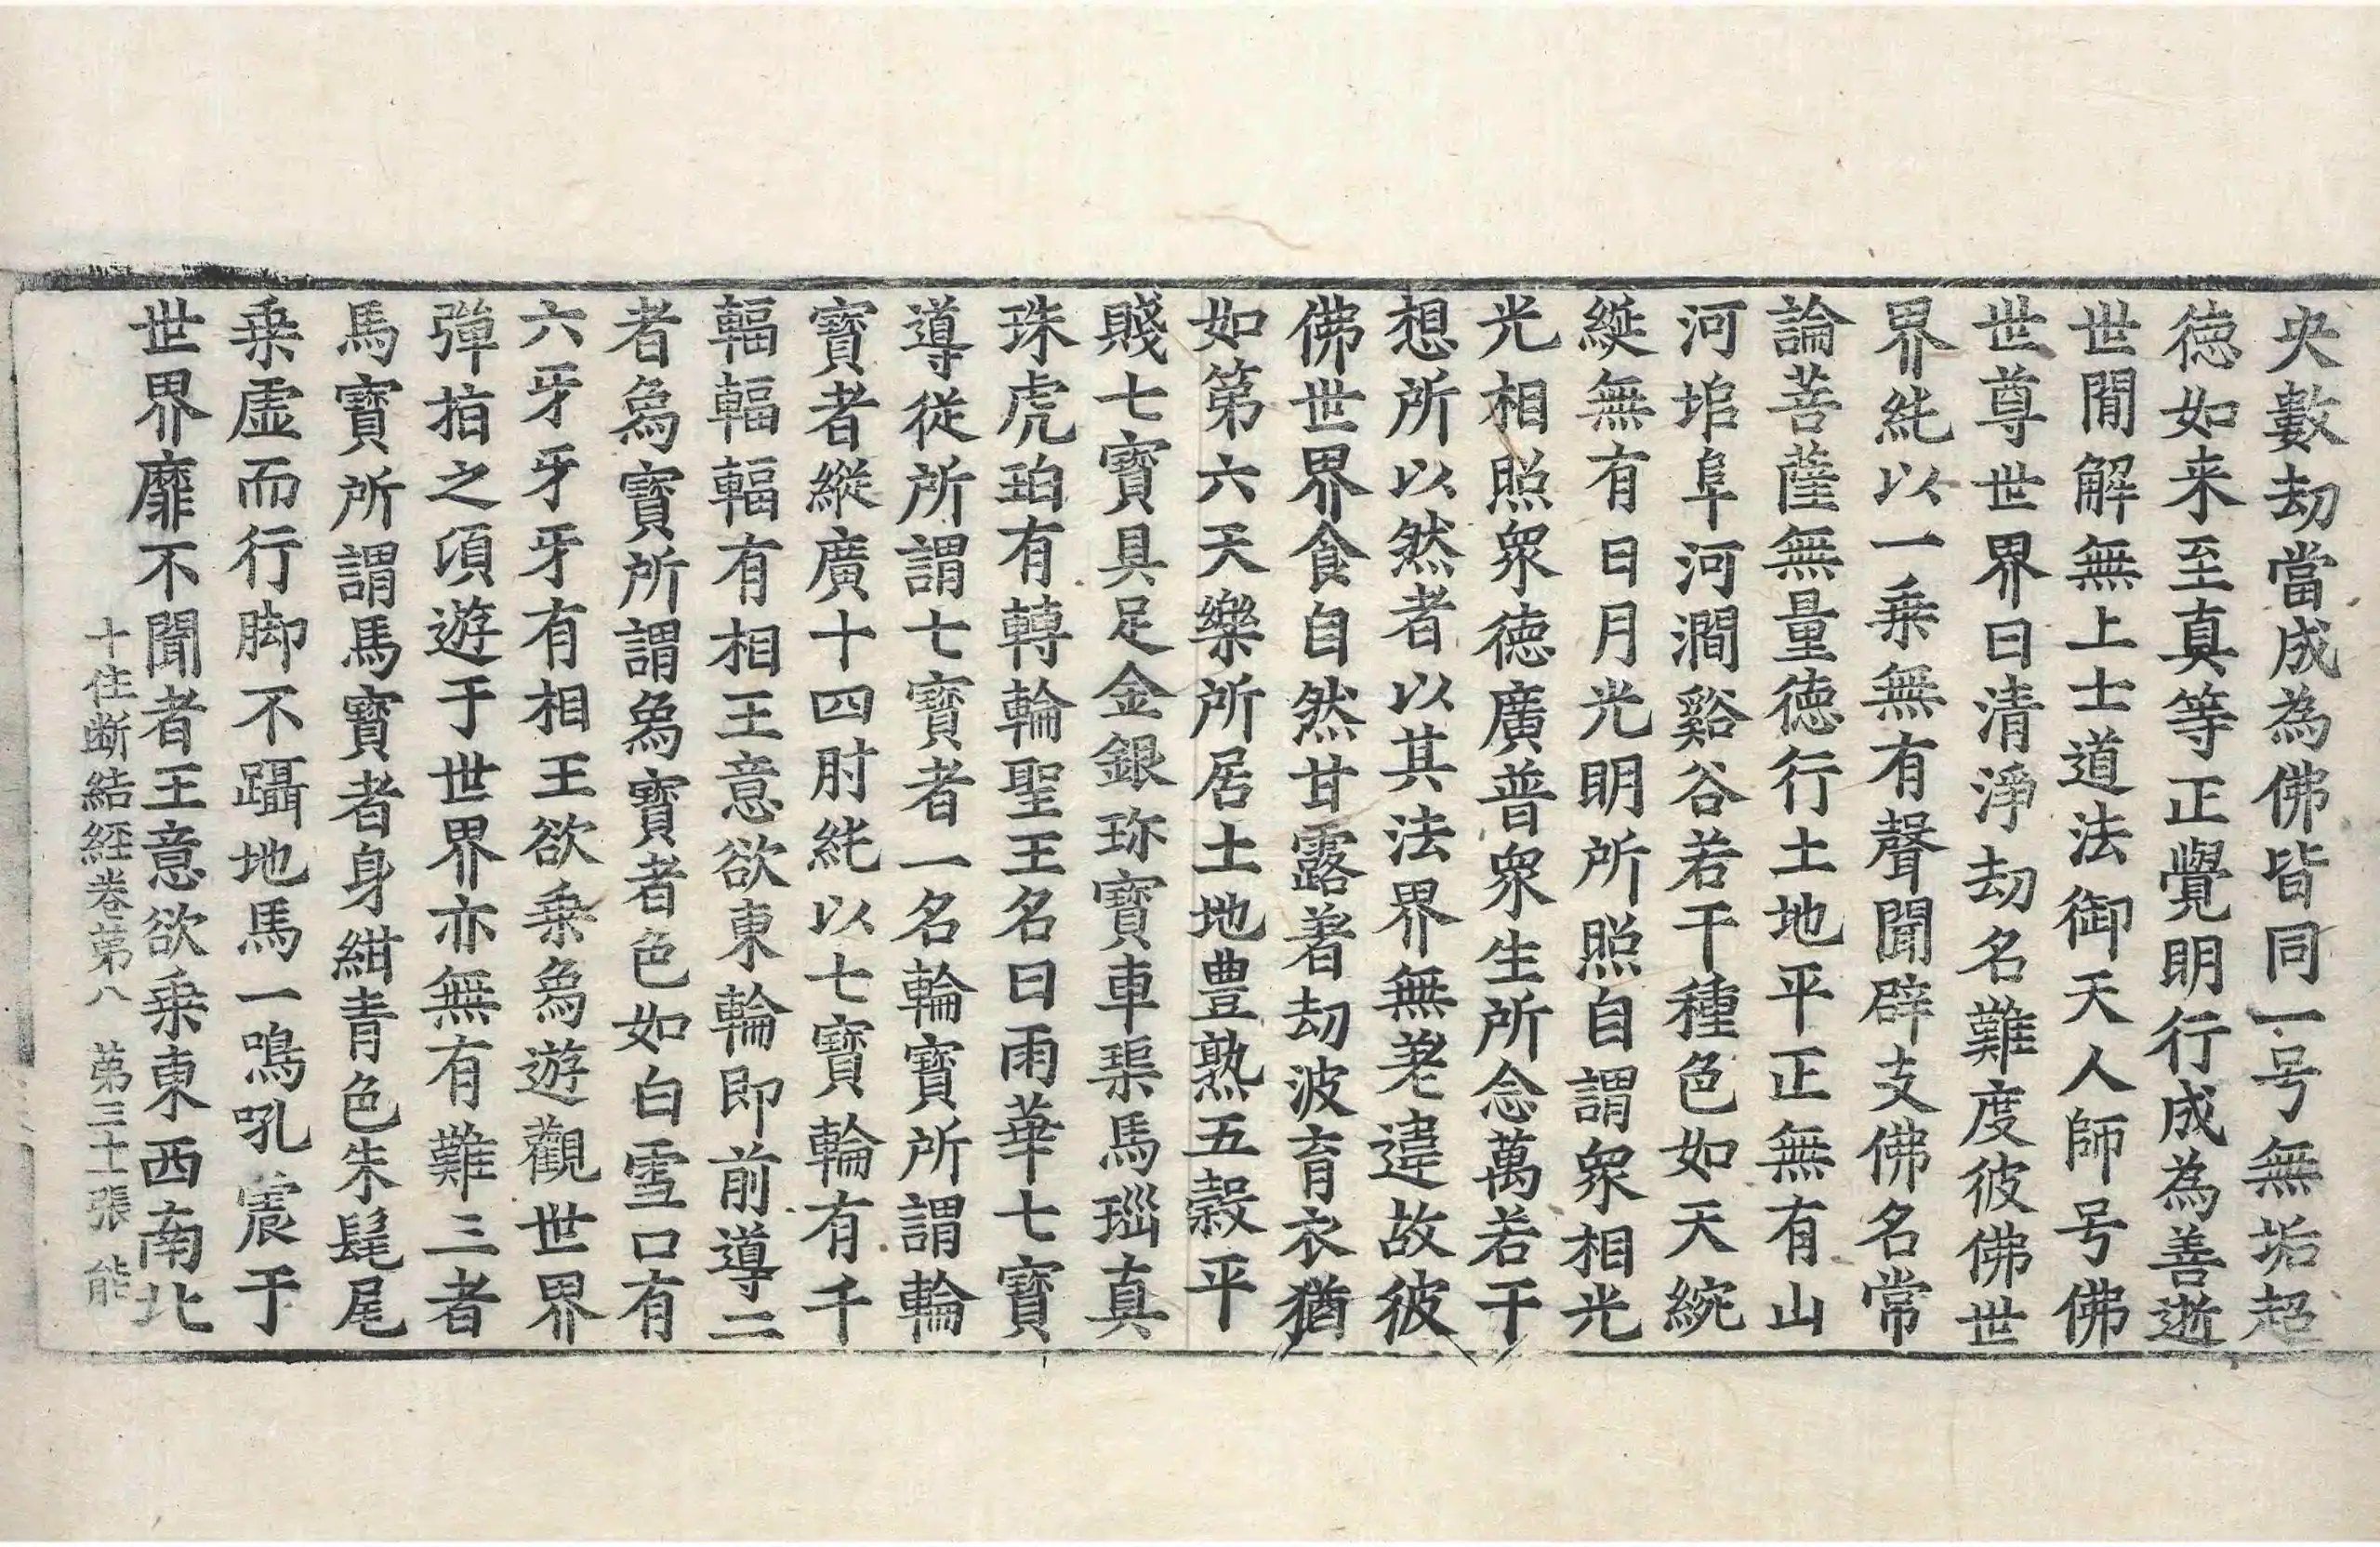 央數劫當成為佛皆同一号無垢超
德如来至真等正覺明行成為善逝
世間解無上士道法御天人師号佛
世尊世界曰清淨劫名難度彼佛世
界純以一乗無有聲聞辟支佛名常
論菩薩無量德行土地平正無有山
河塠阜河澗谿谷若干種色如天綩
綖無有日月光明所照自謂衆相光
光相照衆德廣普衆生所念萬若干
想所以然者以其法界無差違故彼
佛世界食自然甘露著劫波育衣猶
如第六天樂所居土地豊熟五穀平
賤七寶具足金銀珎寶車璖馬瑙真
珠虎珀有轉輪聖王名曰雨華七寶
導從所謂七寶者一名輪寶所謂輪
寶者縱廣十四肘純以七寶輪有千
輻輻輻有相王意欲東輪即前導二
者為寶所謂為寶者色如白雪口有
六牙牙牙有相王欲乗為遊觀世界
彈指之項遊于世界亦無有難三者
馬寶所謂馬寶者身紺青色朱髦尾
乗虛而行脚不躡地馬一鳴吼震于
世界靡不聞者王意欲乗東西南北
十住断結經卷第八 第三十張 能